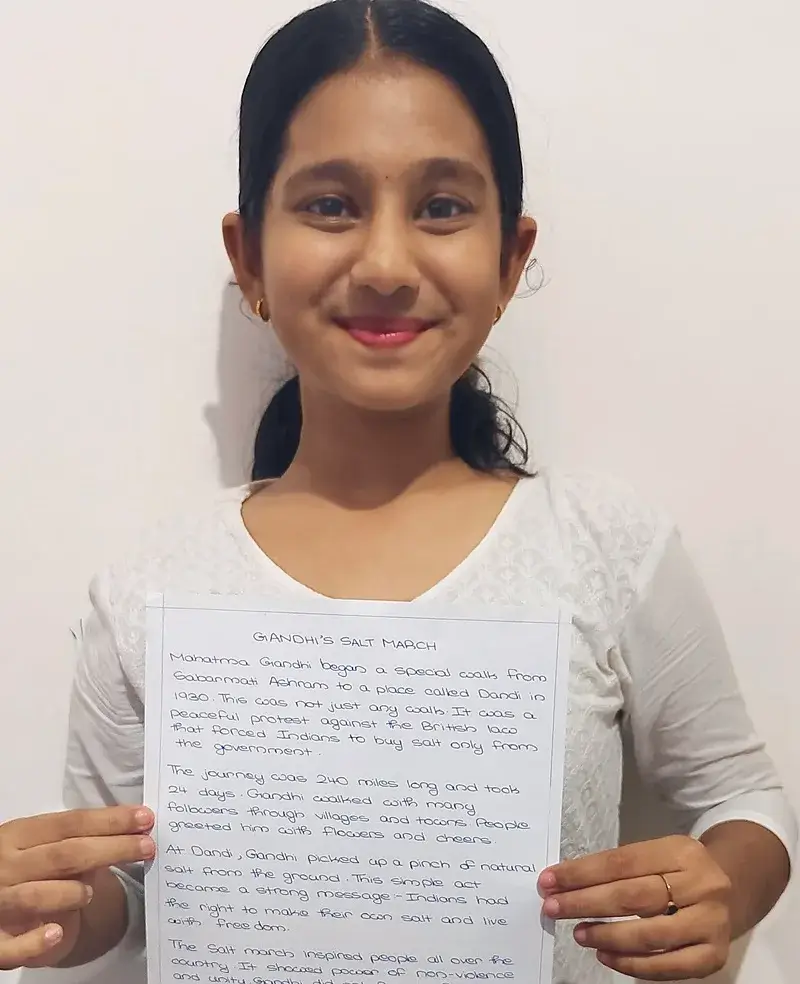 GANDHI'S SALT MARCH
Mahatma Gandhi began a special walk from
Sabarmati Ashram to a place called Dandi in
1930. This was not just any walk. It was a
peaceful protest against the British law
that forced Indians to buy salt only from
the government.
The journey was 240 miles long and took
24 days. Gandhi walked with many
followers through villages and towns. People
greeted him with flowers and cheers.
At Dandi, Gandhi picked up a pinch of natural
salt from the ground. This simple act
became a strong message:- Indians had
the right to make their own salt and live
with freedom.
The Salt march inspired people all over the
country. It showed power of non-violence
and unity Gandhi did